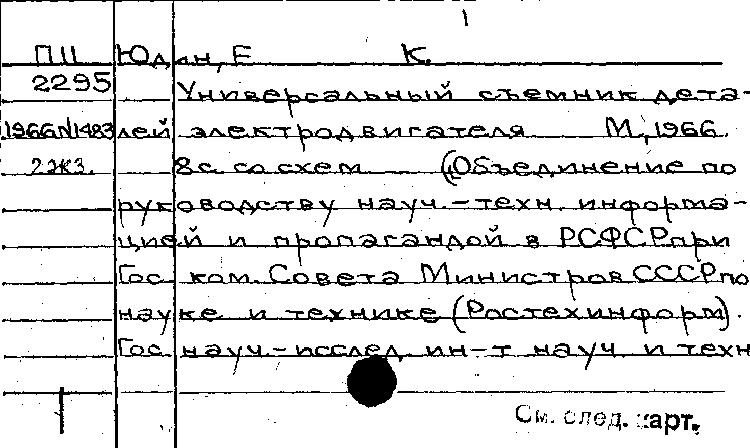 1
П11 Юдин, Е К.
2295 Универсальный съемник дета-
1966N1483 лей электродвигателя М., 1966.
2 экз. 8 с. со схем (Объединение по
руководству науч.-техн. информа-
цией и пропагандой в РСФСР при
Гос ком. Совета Министров СССР по
науке и технике (Ростехинформ).
Гос науч-исслед. ин-т науч и техн
См. след. карт.